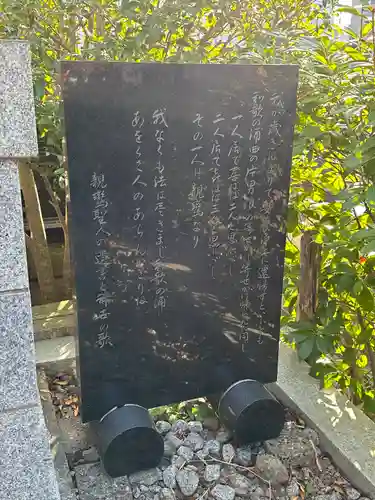 我が歳きはまりて安養浄土に還帰すといふとも
和歌の浦曲の片男浪の寄せかけ寄せかけ帰らんに同じ
一人居て喜ばは二人と思ふべし
二人居て喜ばは三人と思ふべし
その一人は親鸞なり
我なくも法は尽きまじ和歌の浦
あをくさ人のあらんかぎりは
親鸞聖人の遺言と辞世の歌